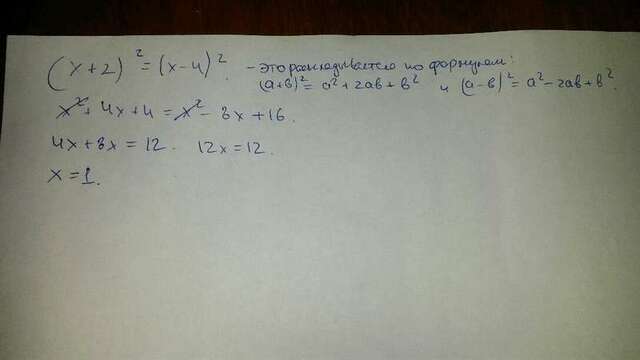 (x+2)²=(x-4)². - это раскладывается по формулам:
(a+b)²=a²+2ab+b² и (a-b)²=a²-2ab+b².
x²+4x+4=x²-8x+16.
4x+8x=12. 12x=12.
x=1.